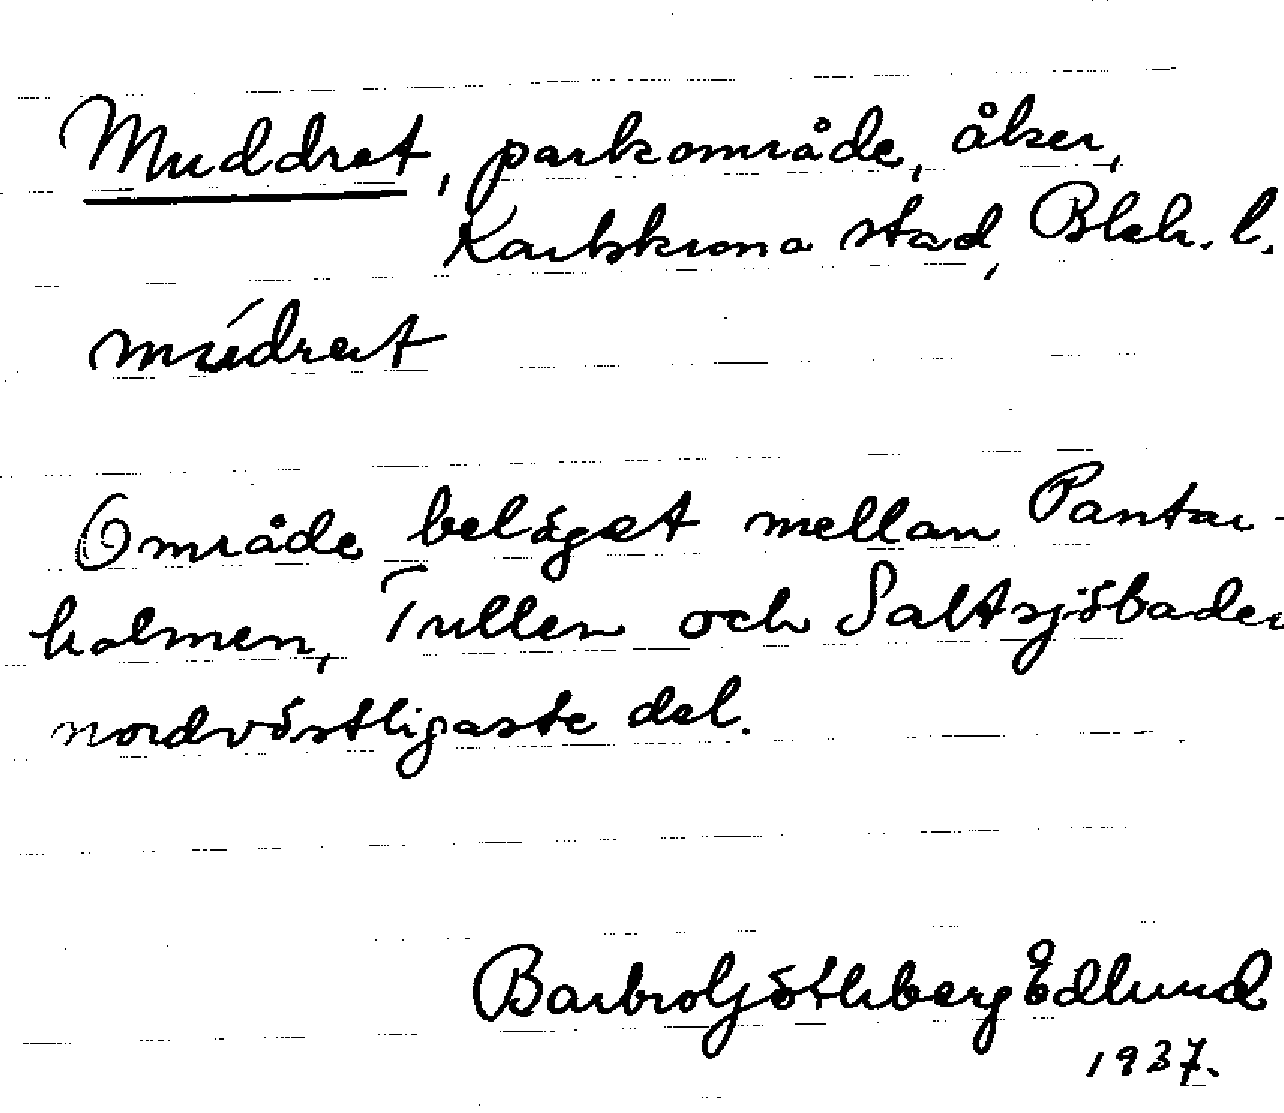 Muddret, parkområde, åker,
Karlskrona stad, Blek. l.
múdrat
Område beläget mellan Pantar-
holmen, Tullen och Saltsjöbaden
nordvästligaste del.
Barbro Göthberg Edlund
1937.